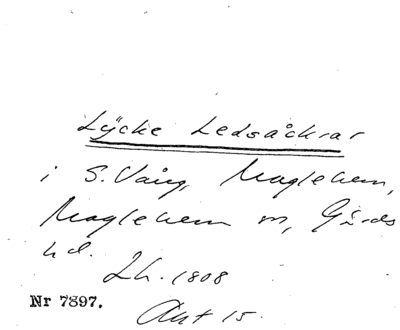 Lÿcke Ledsåckrar
i S. Vång, Maglehem,
Maglehem sn, Gärds
hd.
Lh. 1808
Nr 7897.
Akt 15.